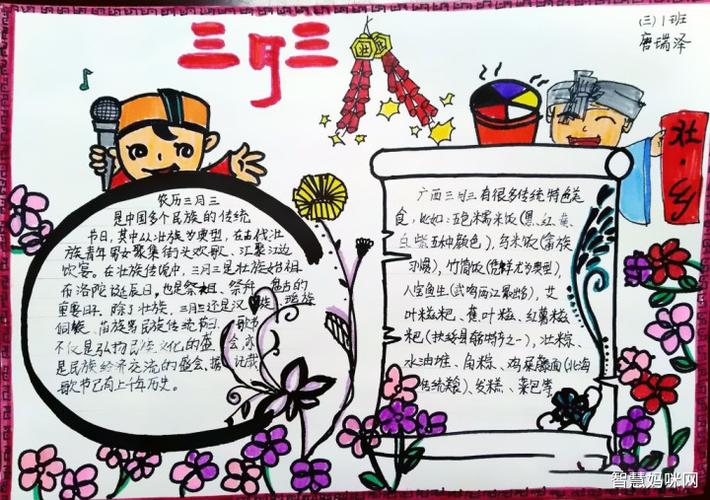 三月三
(三)1班
唐瑞泽
壮·乡
农历三月三
是中国多个民族的传统
节日,其中以壮族为典型,在古代壮
族青年男女聚集街头欢歌、汇聚江边
饮宴。在壮族传说中,三月三是壮族始祖
布洛陀诞辰日,也是祭祖、祭拜盘古的
重要日子。除了壮族,三月三还是汉族、瑶族
侗族、苗族等民族传统节日。歌书
不仅是弘扬民族文化的盛会,亦
是民族经济交流的盛会,据记载
歌书已有上千年历史。
广西三月三有很多传统特色美
食,比如:五色米糯米饭(黑、红、黄、
白、紫五种颜色)、乌米饭(畲族
习俗)、竹筒饭(尤为典型)、
八宝鱼生(武鸣两江最出名)、艾
叶糍粑、蕉叶糍、红薯糍
粑(扶绥县特色之一)、壮粽、
水油堆、角粽、鸡屎藤面(北海
传统美食)、发糕、菜包等
智慧妈咪网